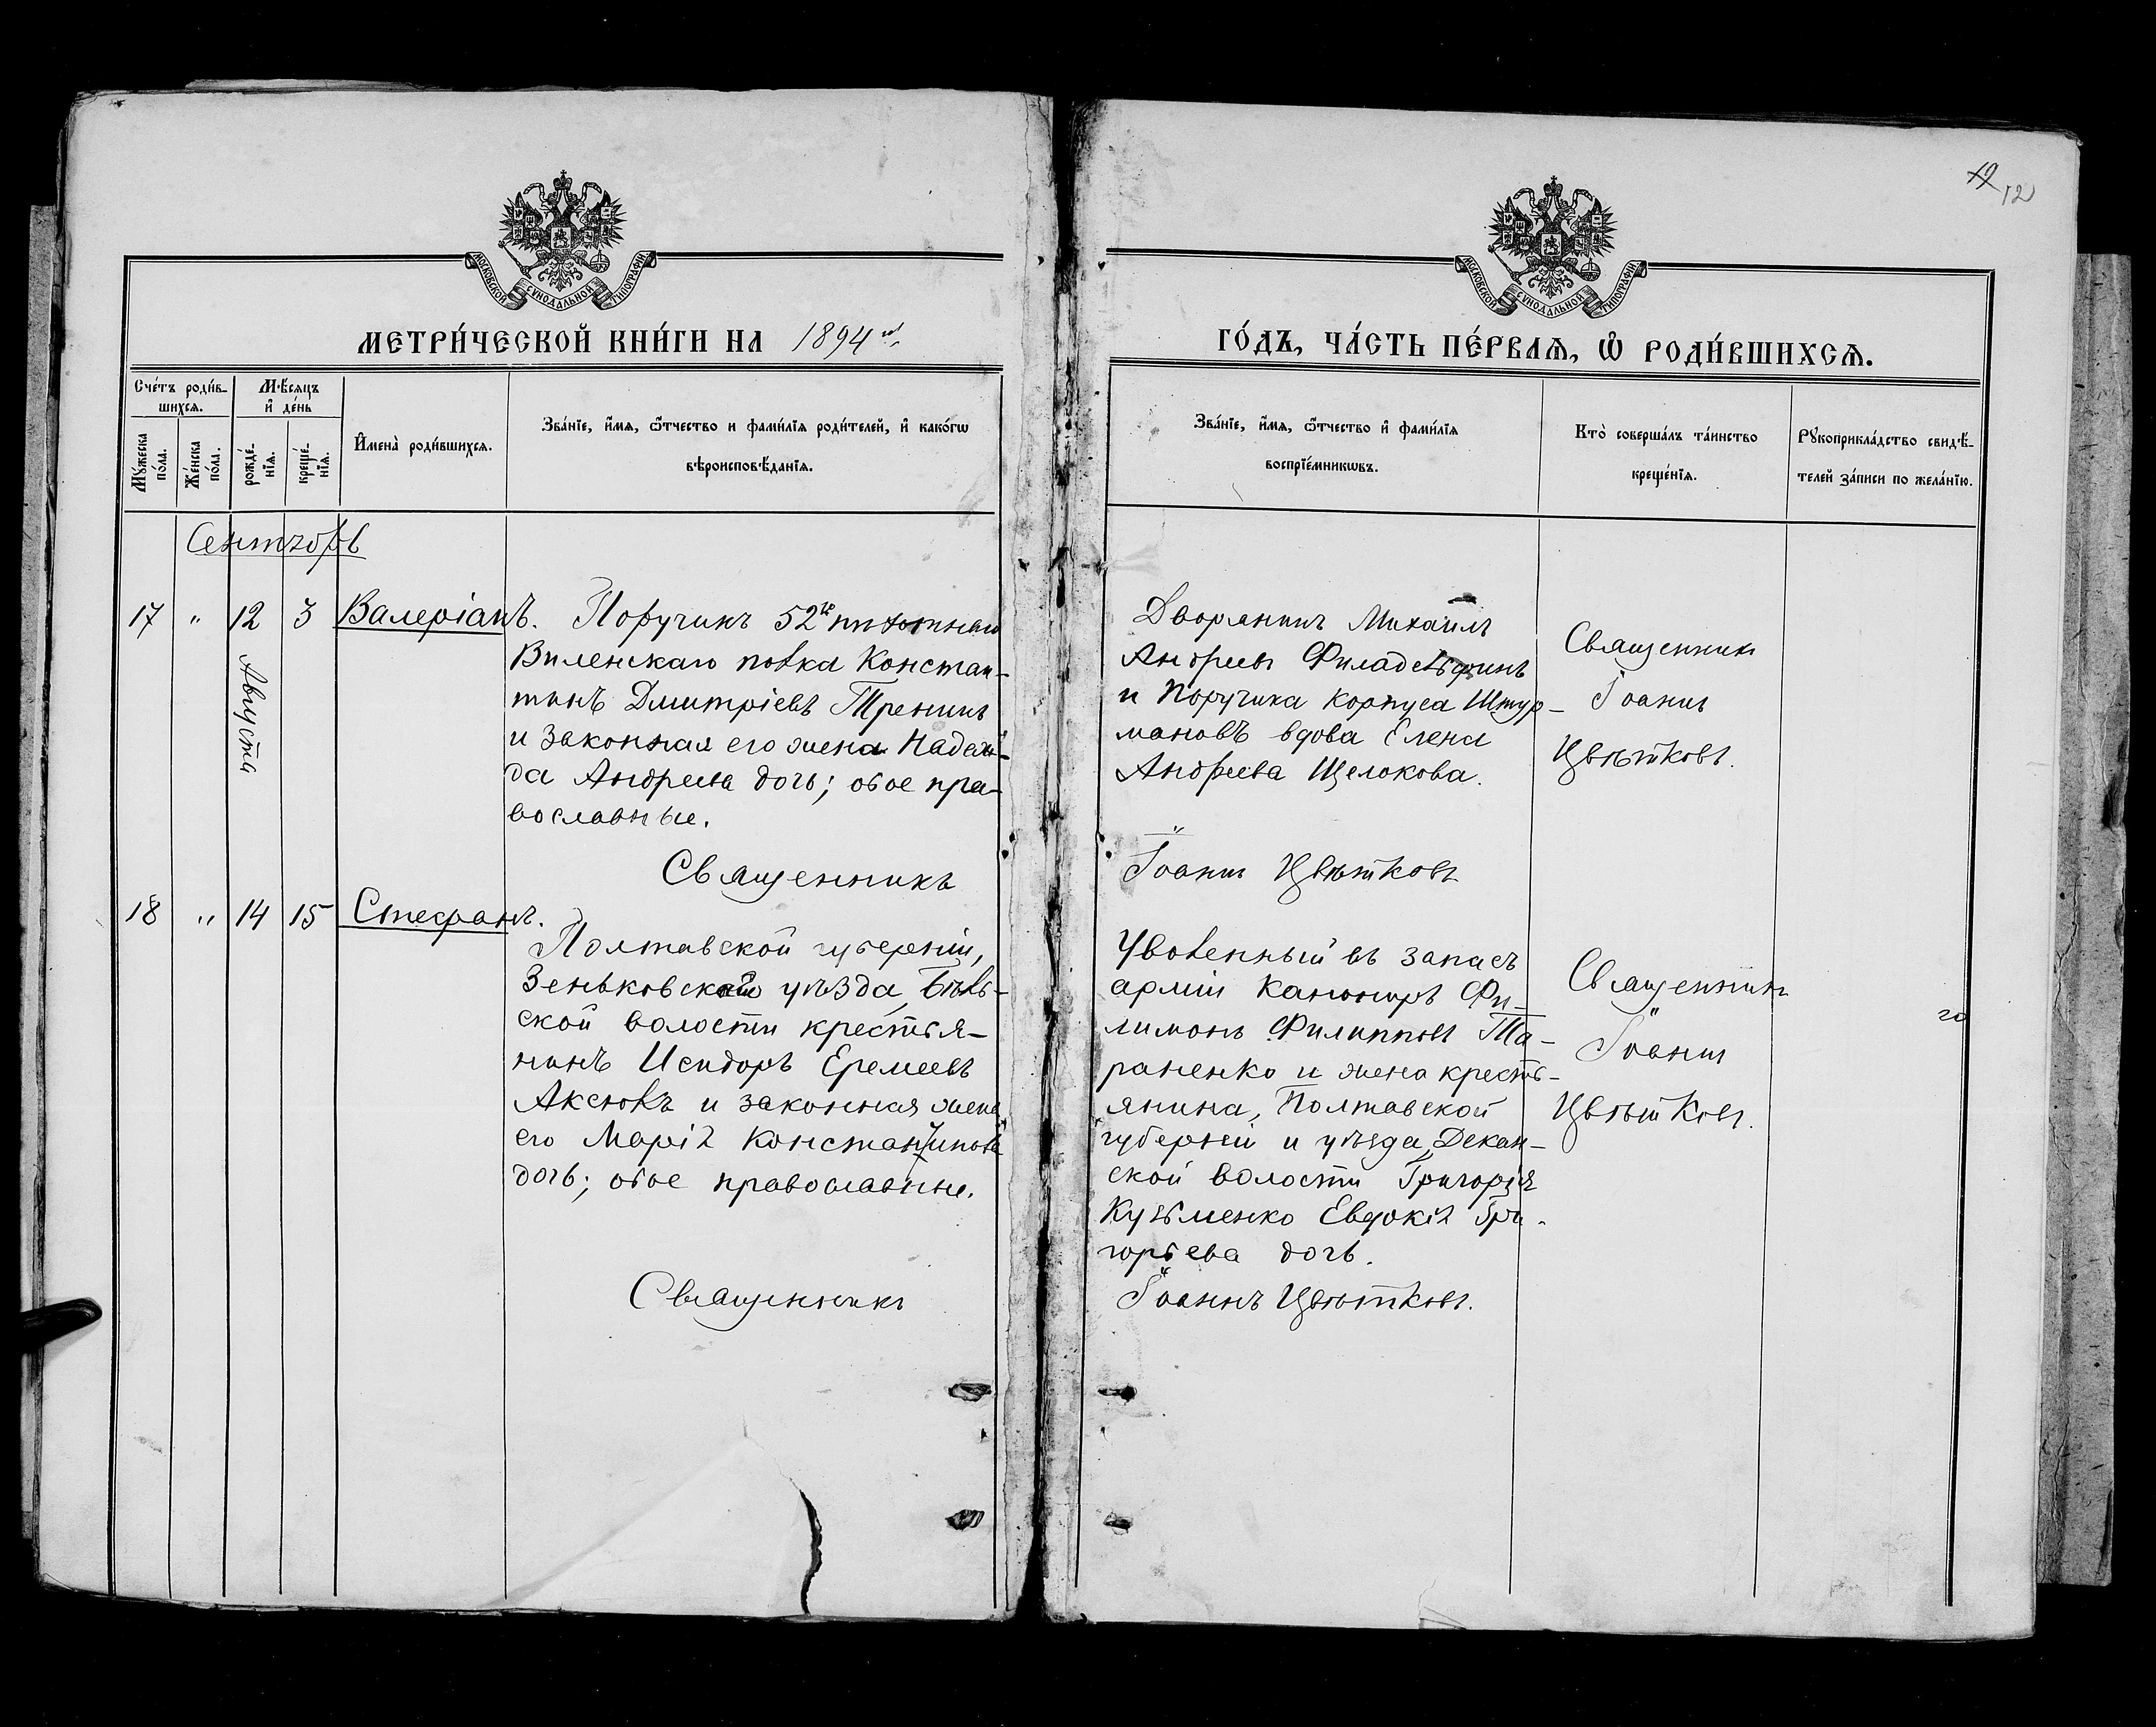 19 12
МОСКОВСКОЙ СѴНОДАЛЬНОЙ ТИПОГРАФІИ
МОСКОВСКОЙ СѴНОДАЛЬНОЙ ТИПОГРАФІИ
МЕТРИ́ЧЕСКОЙ КНИ́ГИ НА 1894й
ГО́ДЪ, ЧА́СТЬ ПЕ́РВАѦ, Ѡ҆ РОДИ́ВШИХСѦ.
Сче́тъ роди́в-
шихсѧ.
Мѣ́сѧцъ
и҆ де́нь
Мꙋ́жеска
по́ла.
Же́нска
по́ла.
рожде́-
нїѧ.
креще́-
нїѧ.
И҆мена̀ роди́вшихсѧ.
Зва́нїе, и҆́мѧ, ѻ҆́тчество и фами́лїѧ роди́телей, и҆ како́гѡ
вѣроисповѣ́данїѧ.
Зва́нїе, и҆́мѧ, ѻ҆́тчество и҆ фами́лїѧ
воспрїе́мникѡвъ.
Кто̀ соверша́лъ та́инство
креще́нїѧ.
Рꙋкоприкла́дство свидѣ́-
телей за́писи по жела́нїю.
Сентябрь
17 " 12 3 Валеріанъ.
Августа
Поручикъ 52го пѣхотнаго
Виленскаго полка Констан-
тинъ Дмитріевъ Тренинъ
и законная его жена Надеж-
да Андреева дочь; обое пра-
вославные.
Дворянинъ Михаилъ
Андреевъ Филадельфинъ
и Поручика Корпуса Штур-
мановъ вдова Елена
Андреева Щелокова.
Священникъ
Іоаннъ
Цвѣтковъ.
Священникъ Іоаннъ Цвѣтковъ
18 " 14 15 Стефанъ.
Полтавской губерніи,
Зеньковскаго уѣзда, Бѣль-
ской волости крестья-
нинъ Исидоръ Еремеевъ
Аксюкъ и законная жена
его Марія Константинова
дочь; обое православные.
Уволенный въ запасъ
арміи Канониръ Фи-
лимонъ Филипповъ Та-
раненко и жена кресть-
янина, Полтавской
губерніи и уѣзда, Декан-
ской волости Григорія
Кузьменко Евдокія Гри-
горьева дочь.
Священникъ
Іоаннъ
Цвѣтковъ.
го
Священникъ Іоаннъ Цвѣтковъ.